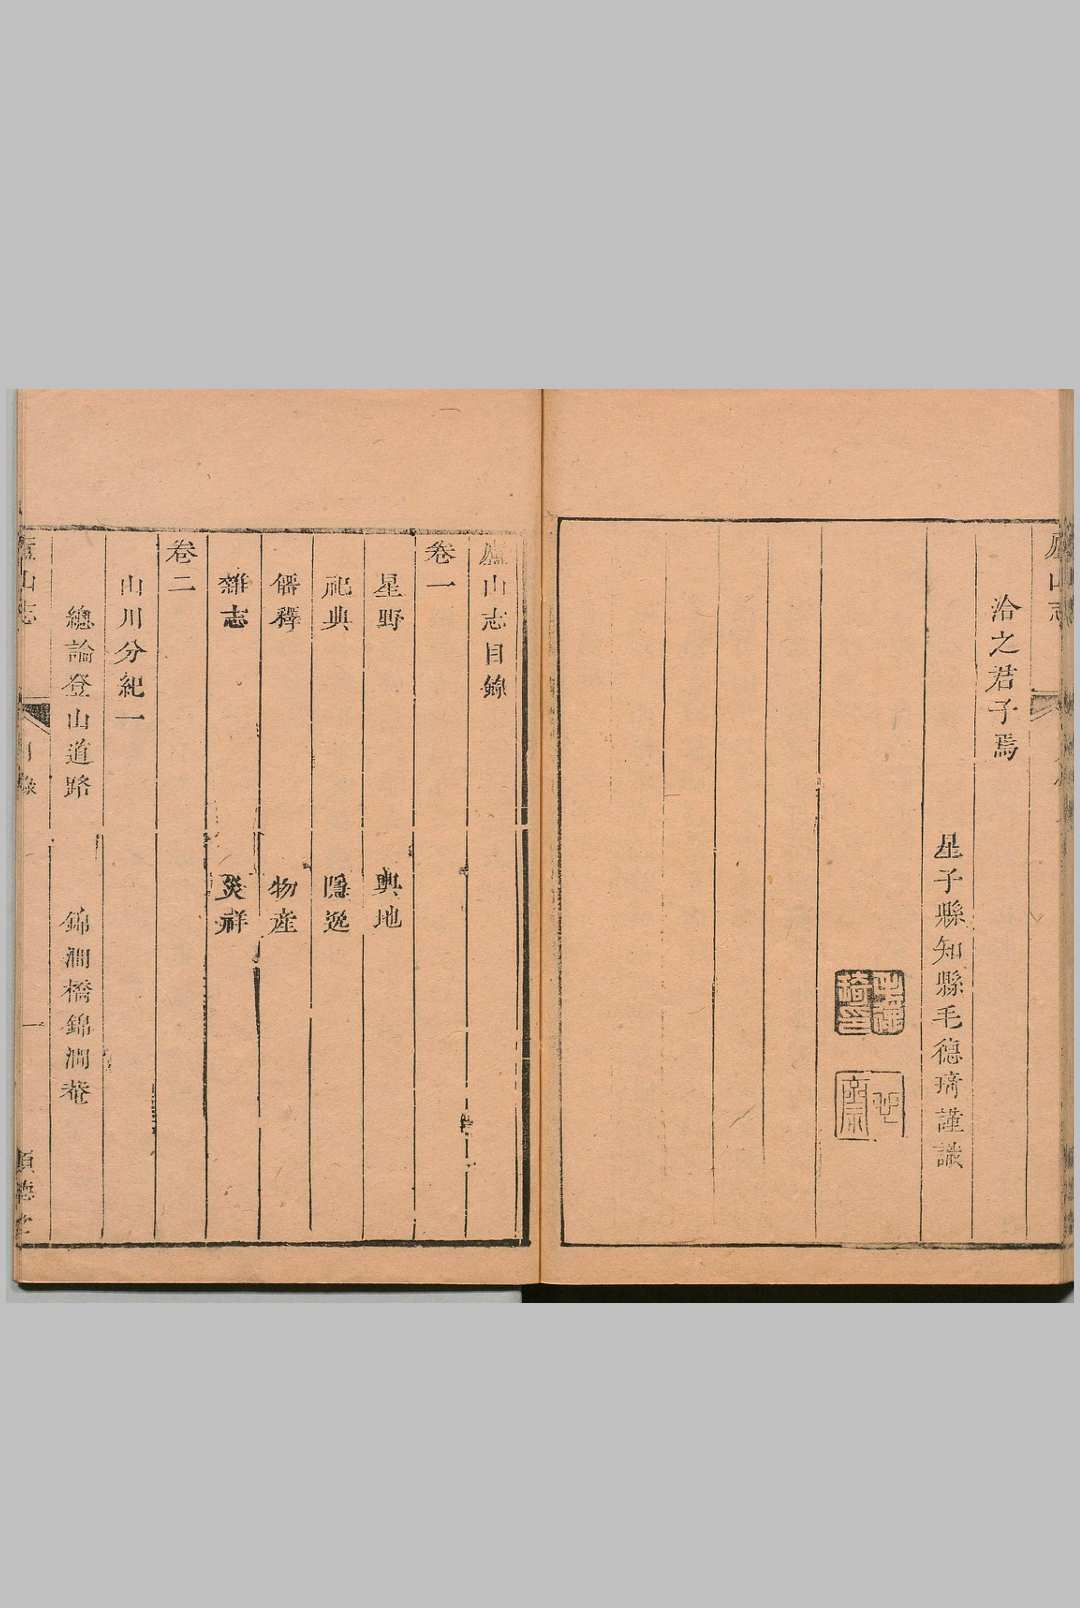 洽之君子焉
星子縣知縣毛德琦謹識
廬山志目錄
卷一
星野　輿地
祀典　隱逸
僊釋　物產
雜志　災祥
卷二
山川分紀一
總論登山道路　錦澗橋錦澗菴
廬山志　目錄　一　順德堂